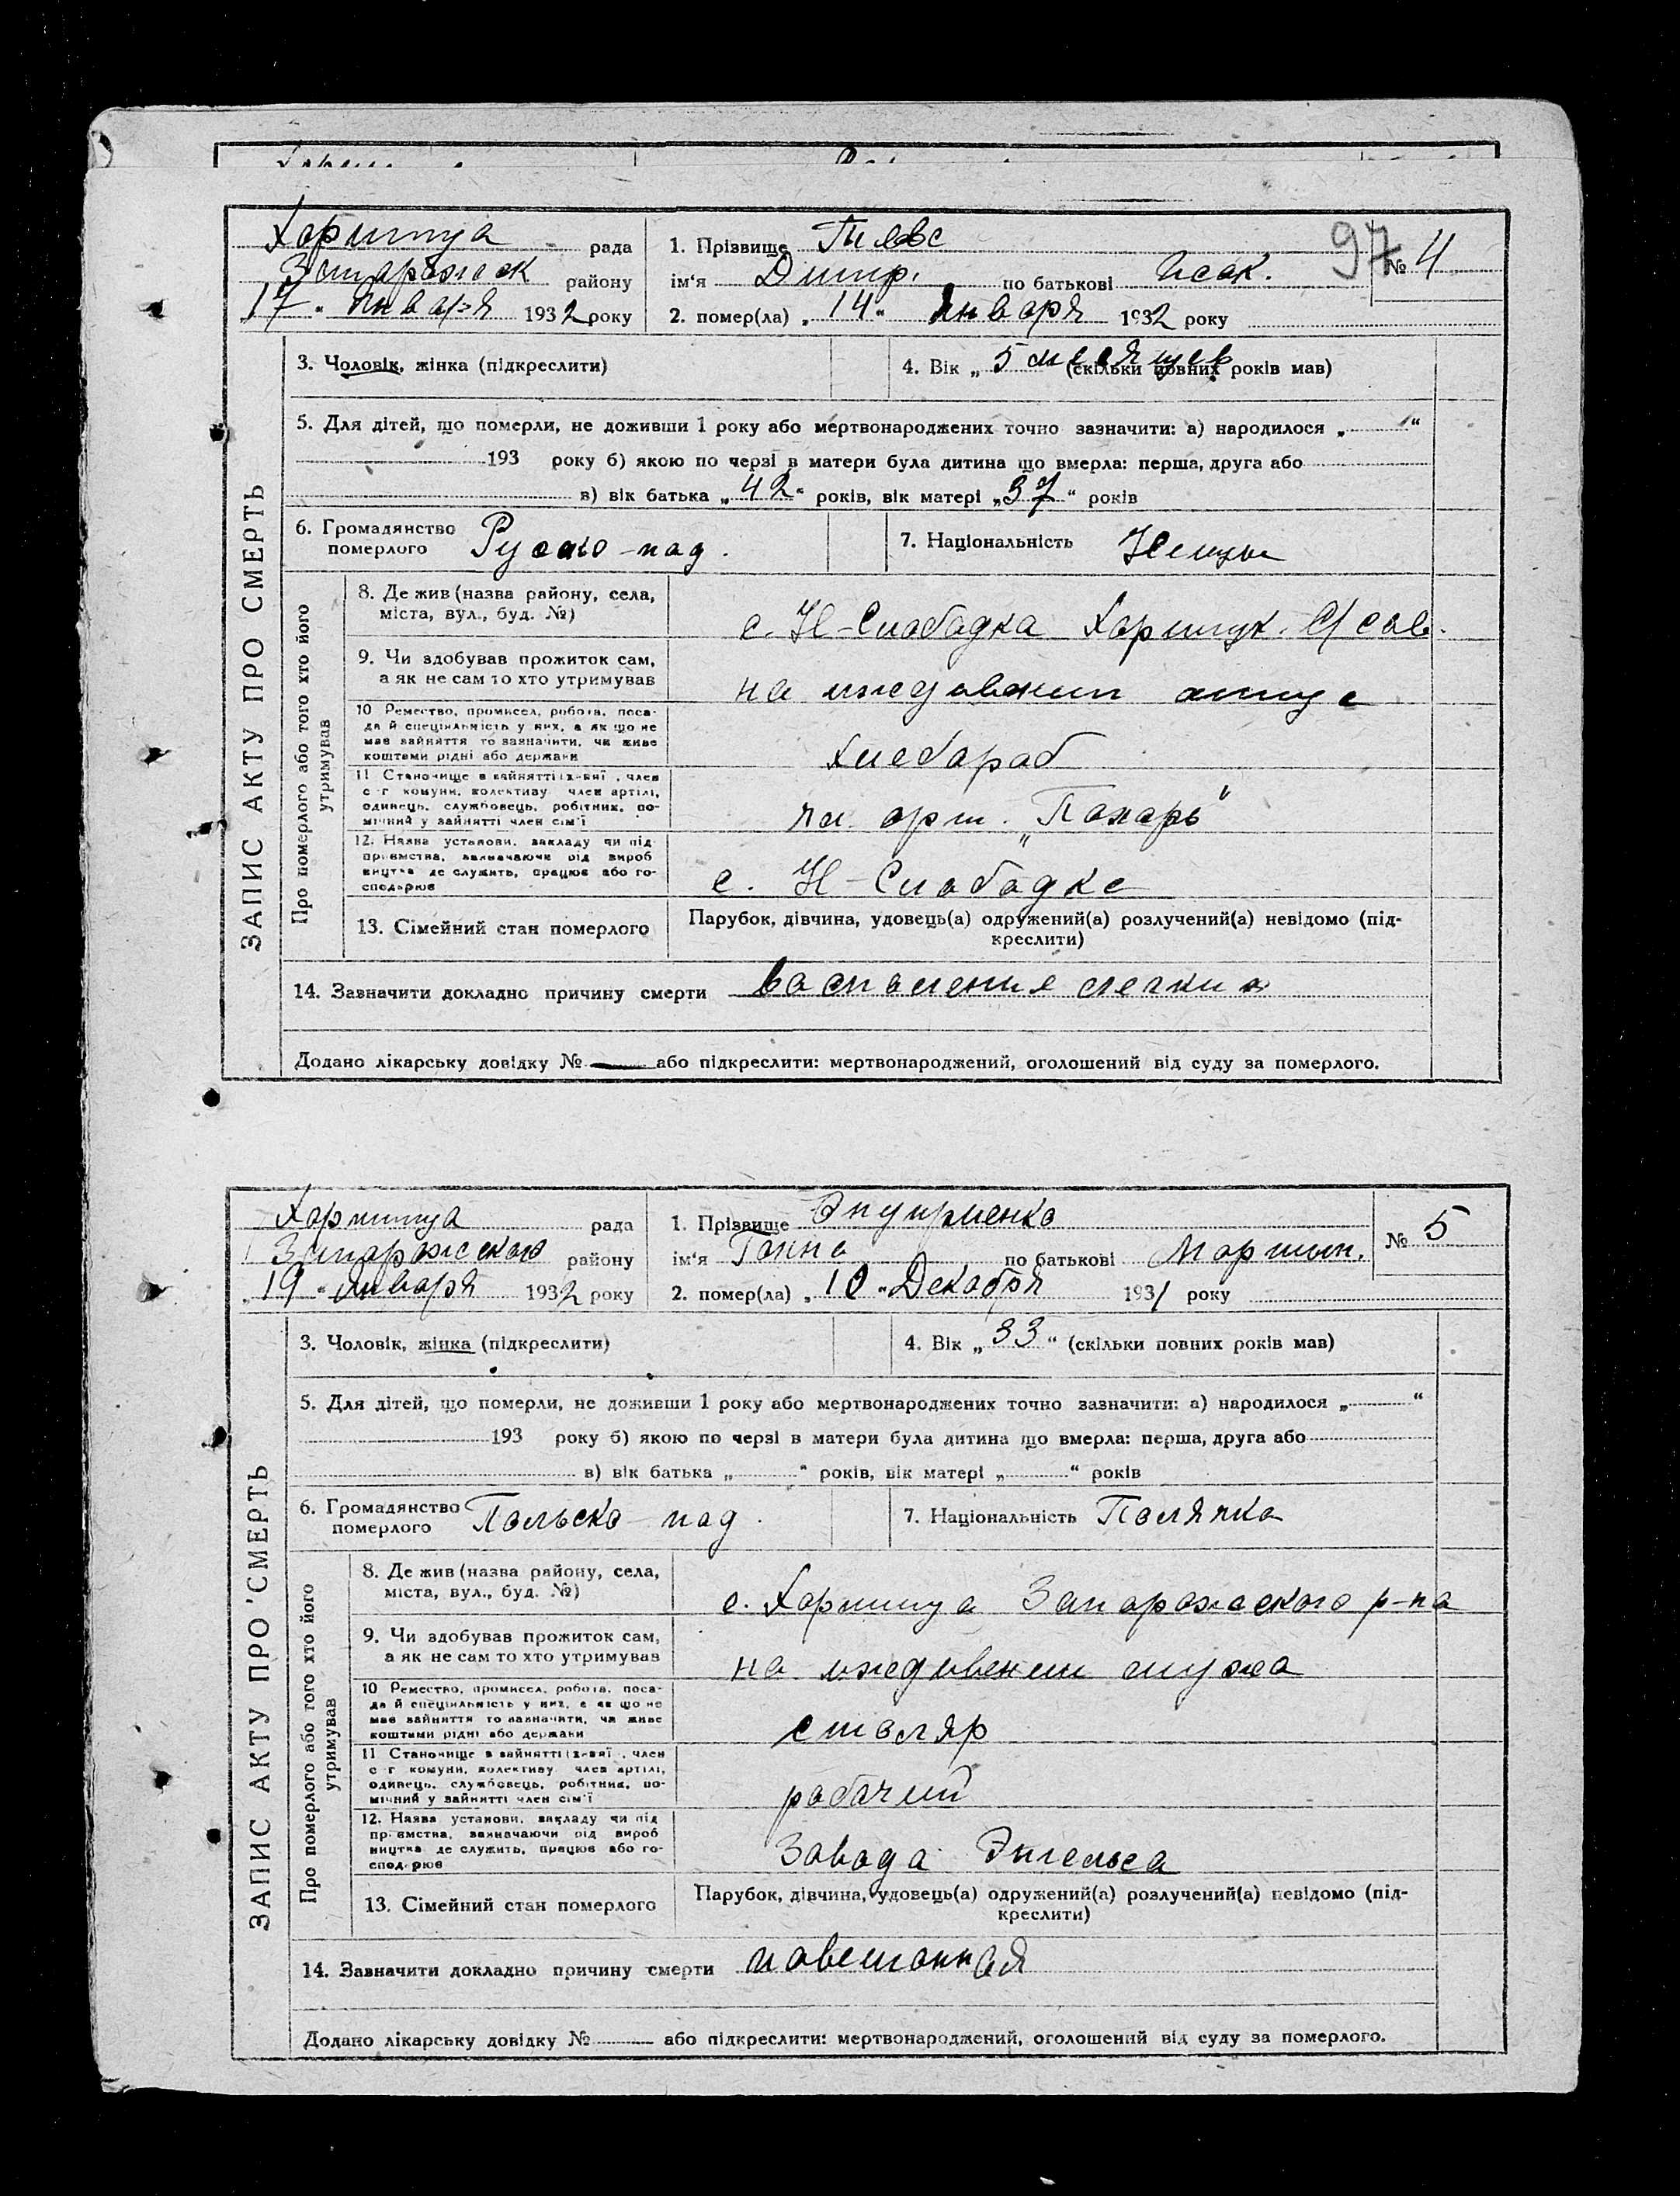 Хортица рада
Запорожск району
17 " Января 1932 року
1. Прізвище Тиявс
ім'я Дмитр. по батькові Исак.
97
№ 4
2. помер(ла) „ 14 " Января 1932 року
3. Чоловік, жінка (підкреслити)
4. Вік „ 5 месяцев (скільки повних років мав)
5. Для дітей, що померли, не доживши 1 року або мертвонароджених точно зазначити: а) народилося „ "
193 року б) якою по черзі в матери була дитина що вмерла: перша, друга або
в) вік батька „ 42 " років, вік матері „ 37 " років
6. Громадянство померлого Руско-под.
7. Національність Немец
ЗАПИС АКТУ ПРО СМЕРТЬ
Про померлого або того хто його утримував
8. Де жив (назва району, села,
міста, вул., буд. №)
с. Н-Слободка Хортицк. С/сов.
9. Чи здобував прожиток сам,
а як не сам то хто утримував
на иждивении отца
10 Ремество, промисел, робота, поса-
да й спеціяльність у них, а як що не
має зайняття то зазначити, чи живе
коштами рідні або держави
хлебороб
11 Становище в зайнятті (х-вні, член
с-г комуни, колективу член артілі,
одинець, службовець, робітник, по-
мічний у зайнятті член сім'ї
чл. арт. „Пахарь"
12. Назва установи, закладу чи під-
приємства, зазначаючи рід вироб
ництва де служить, працює або го-
сподарює
с. Н-Слободка
13. Сімейний стан померлого
Парубок, дівчина, удовець(а) одружений(а) розлучений(а) невідомо (під-
креслити)
14. Зазначити докладно причину смерти воспаление легких
Додано лікарську довідку № або підкреслити: мертвонароджений, оголошений від суду за померлого.
Хортица рада
Запорожского району
„ 19 " Января 1932 року
1. Прізвище
ім'я Ганна по батькові Мартын.
№ 5
2. помер(ла) „ 10 " Декабря 1931 року
3. Чоловік, жінка (підкреслити)
4. Вік „ 33 " (скільки повних років мав)
5. Для дітей, що померли, не доживши 1 року або мертвонароджених точно зазначити: а) народилося „ "
193 року б) якою по черзі в матери була дитина що вмерла: перша, друга або
в) вік батька „ " років, вік матері „ " років
6. Громадянство померлого Польско-под.
7. Національність Полячка
ЗАПИС АКТУ ПРО СМЕРТЬ
Про померлого або того хто його утримував
8. Де жив (назва району, села,
міста, вул., буд. №)
с. Хортица Запорожского р-на
9. Чи здобував прожиток сам,
а як не сам то хто утримував
на иждивении мужа
10 Ремество, промисел, робота, поса-
да й спеціяльність у них, а як що не
має зайняття то зазначити, чи живе
коштами рідні або держави
столяр
11 Становище в зайнятті (х-вні, член
с-г комуни, колективу член артілі,
одинець, службовець, робітник, по-
мічний у зайнятті член сім'ї
рабочий
12. Назва установи, закладу чи під
приємства, зазначаючи рід вироб
ництва де служить, працює або го-
сподарює
Завода Энгельса
13. Сімейний стан померлого
Парубок, дівчина, удовець(а) одружений(а) розлучений(а) невідомо (під-
креслити)
14. Зазначити докладно причину смерти повешанная
Додано лікарську довідку № або підкреслити: мертвонароджений, оголошений від суду за померлого.